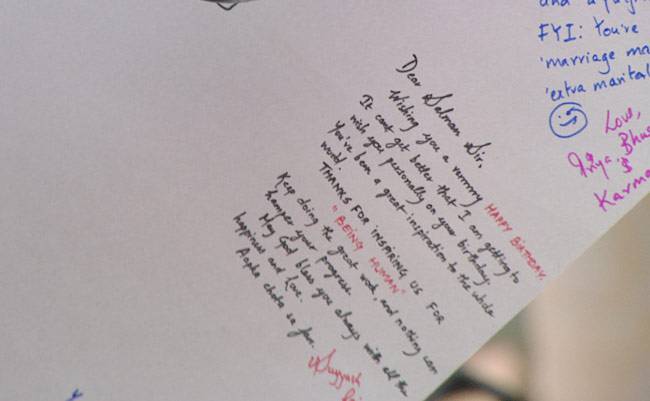 Dear Salman Sir,
Wishing you a verrrry HAPPY BIRTHDAY.
It cant get better that I am getting to
wish you personally on your birthday.
You've been a great inspiration to the whole
world.
THANKS FOR INSPIRING US FOR
"BEING HUMAN"
Keep doing the great work, and nothing can
hamper your progress.
May God bless you always with all the
happiness and love.
Aapka chota sa fan.
Suyyash
and a
FYI: You've
'marriage ma
'extra marital
Love,
Priya Bhu
&
Karma